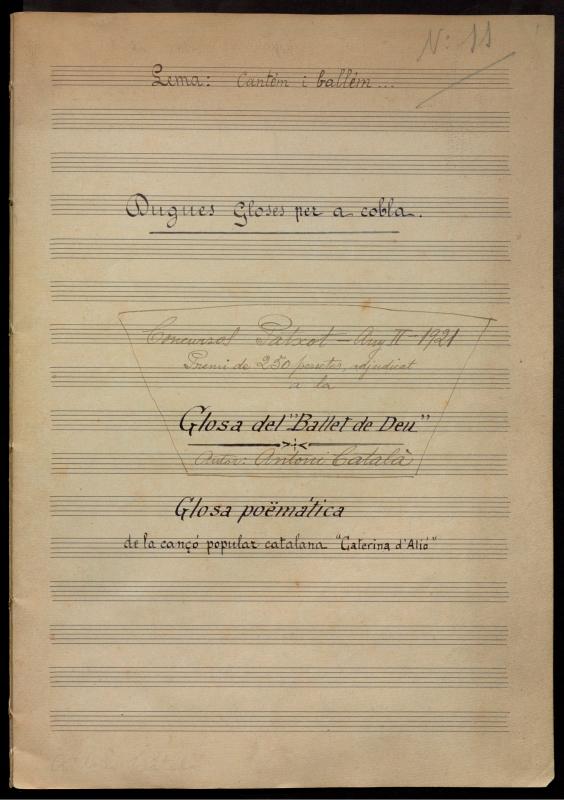 Nº 11
Lema: Cantém i ballém...
Dugues Gloses per a cobla.
Concursos Patxot – Any II – 1921
Premi de 250 pessetes, adjudicat
a la
Glosa del "Ballet de Deu"
Autor: Antoni Català
Glosa poëmática
de la cançó popular catalana "Caterina d'Alió"